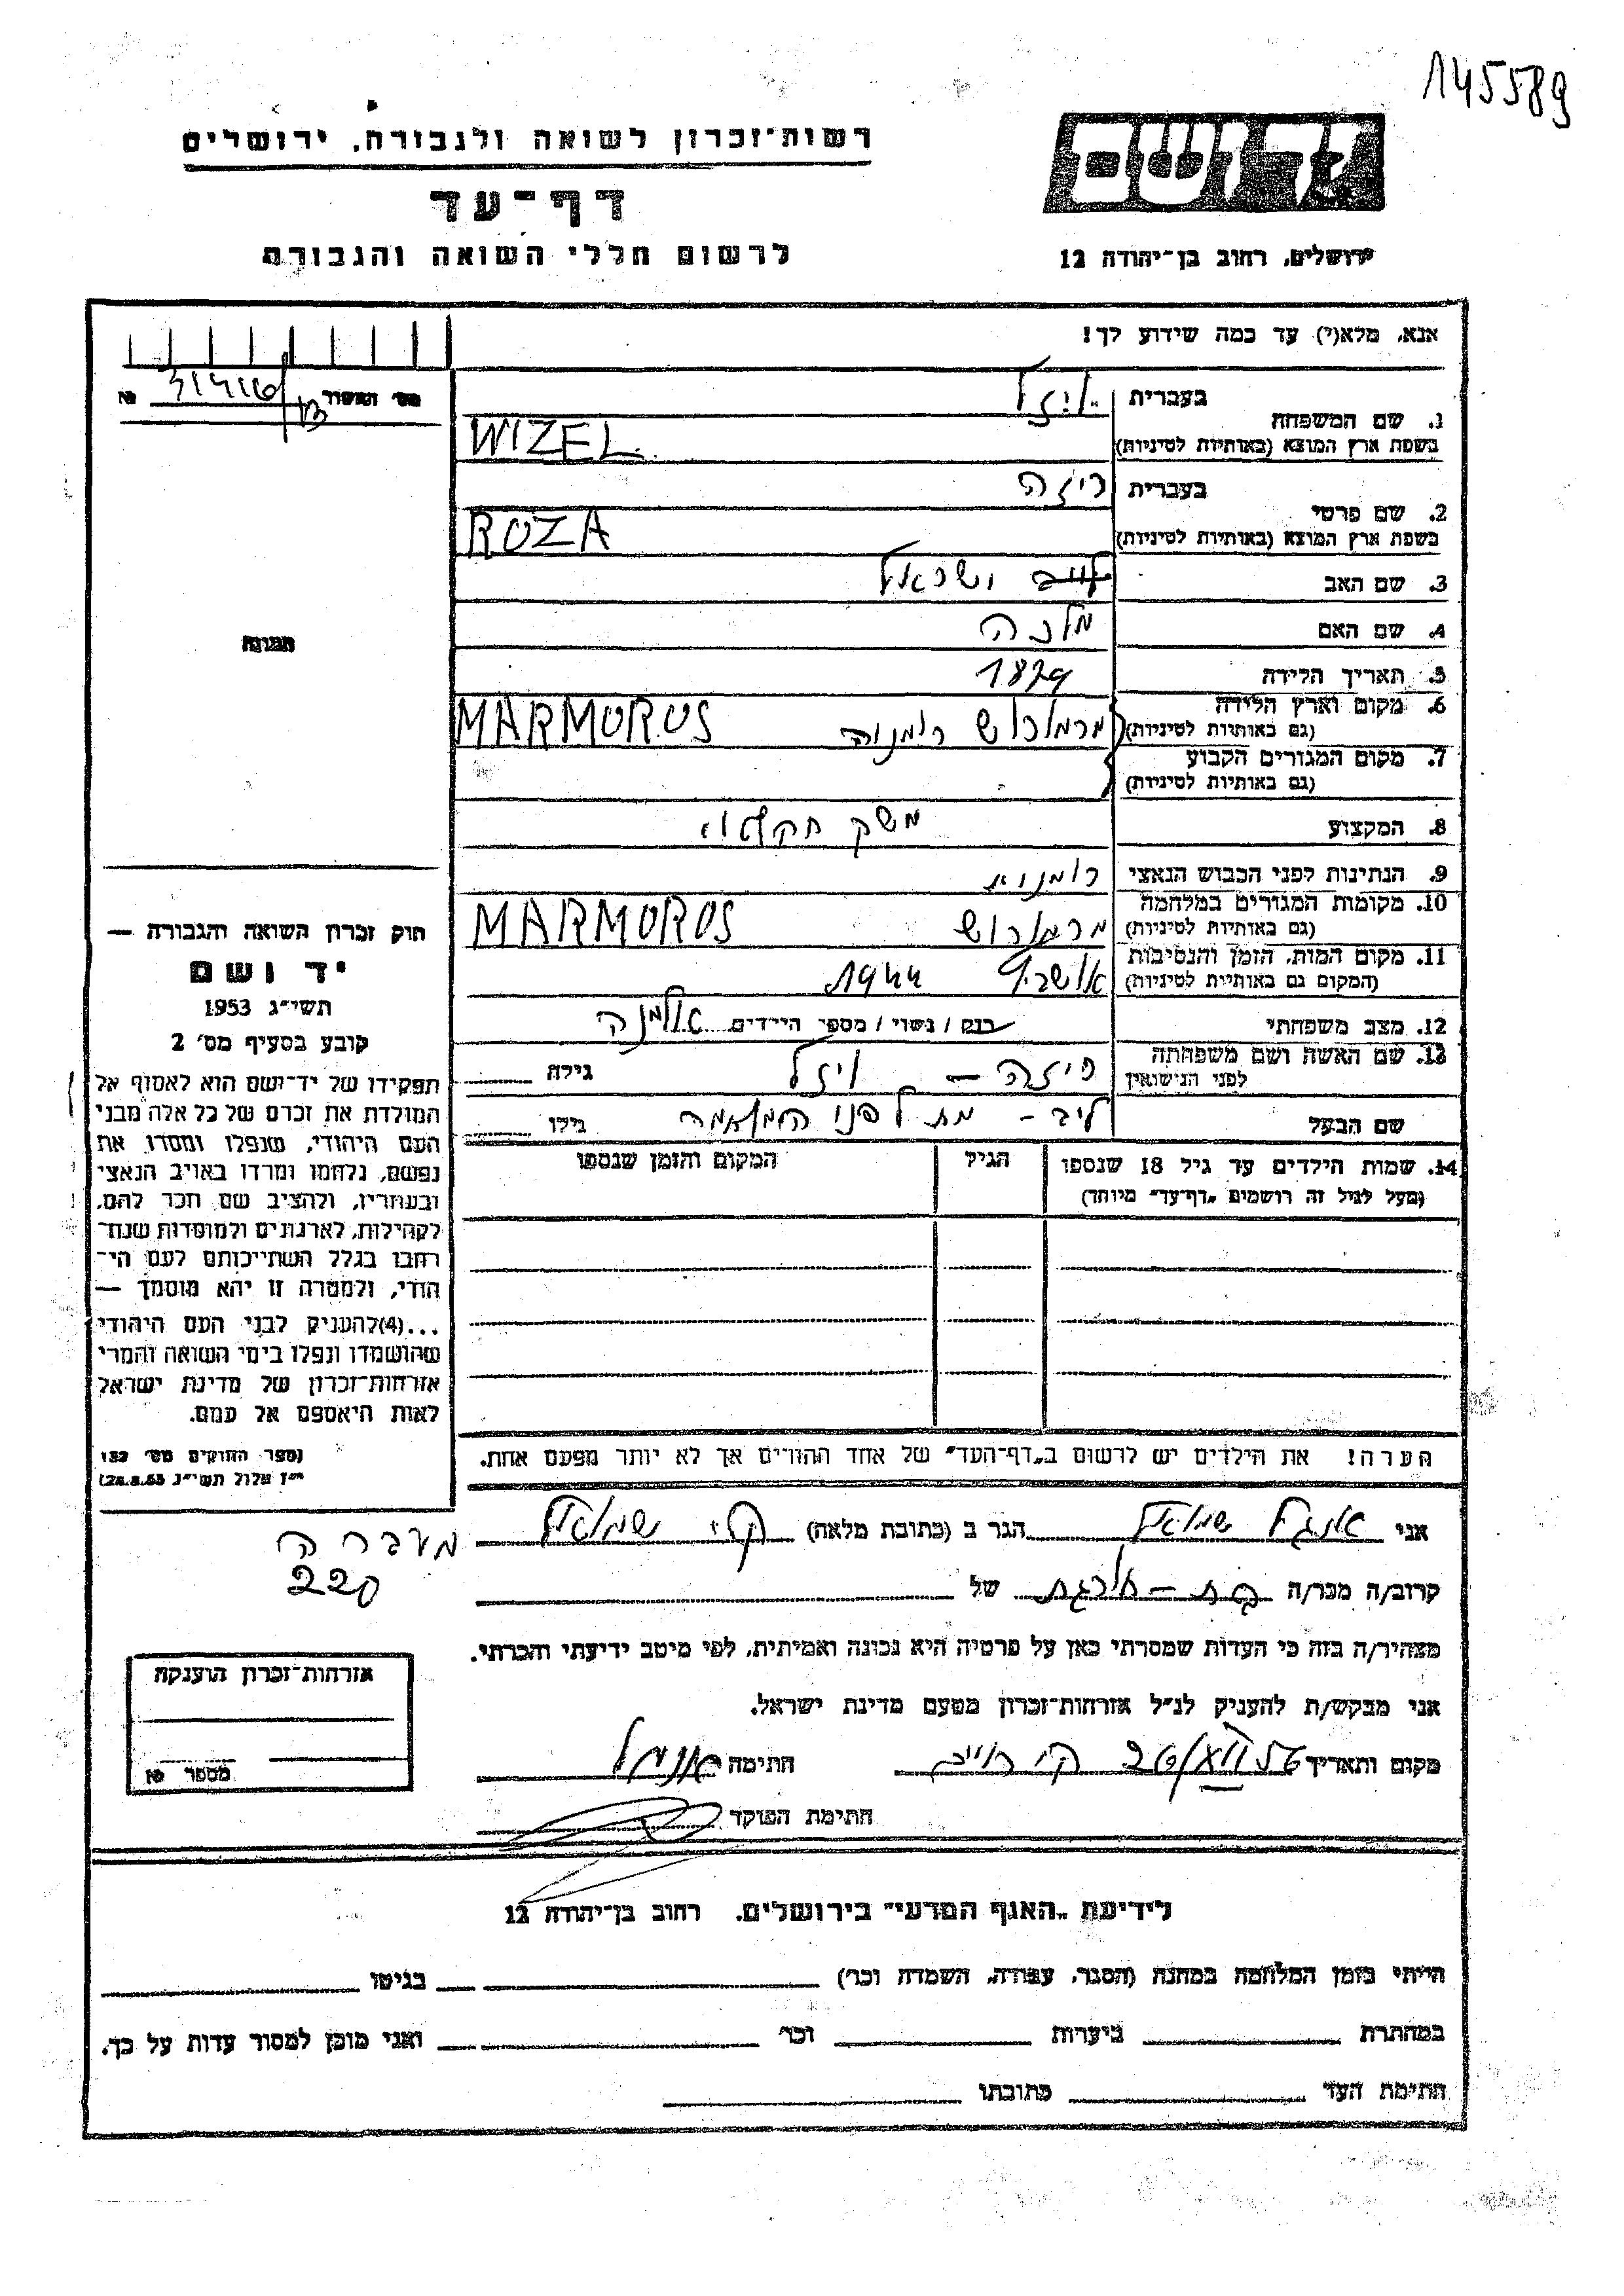 145589
רשות־זכרון לשואה ולגבורה, ירושלים
דף־עד
לרשום חללי השואה והגבורה
יד ושם
ירושלים, רחוב בן־יהודה 12
אנא, מלא(י) עד כמה שידוע לך!
מס׳ האשור №
1. שם המשפחה
בעברית ויזל
בשפת ארץ המוצא (באותיות לטיניות) WIZEL
2. שם פרטי
בעברית ריזה
בשפת ארץ המוצא (באותיות לטיניות) ROZA
3. שם האב ישראל
4. שם האם מלכה
5. תאריך הלידה 1879
6. מקום וארץ הלידה (גם באותיות לטיניות) מרמורוש רומניה MARMOROS
7. מקום המגורים הקבוע (גם באותיות לטיניות)
8. המקצוע משק חקלאי
9. הנתינות לפני הכבוש הנאצי רומנית
10. מקומות המגורים במלחמה (גם באותיות לטיניות) מרמורוש MARMOROS
11. מקום המות, הזמן והנסיבות (המקום גם באותיות לטיניות) אושביץ 1944
12. מצב משפחתי רוק / נשוי / מספר הילדים אלמנה
13. שם האשה ושם משפחתה לפני הנישואין ריזה – ויזל גילה
שם הבעל ליב – מת לפני המלחמה גילו
14. שמות הילדים עד גיל 18 שנספו (מעל לגיל זה רושמים „דף־עד״ מיוחד)
הגיל
המקום והזמן שנספו
הערה! את הילדים יש לרשום ב„דף־העד״ של אחד ההורים אך לא יותר מפעם אחת.
תמונה
חוק זכרון השואה והגבורה —
יד ושם
תשי״ג 1953
קובע בסעיף מס׳ 2
תפקידו של יד־ושם הוא לאסוף אל
המולדת את זכרם של כל אלה מבני
העם היהודי, שנפלו ומסרו את
נפשם, נלחמו ומרדו באויב הנאצי
ובעוזריו, ולהציב שם וזכר להם,
לקהילות, לארגונים ולמוסדות שנח־
רבו בגלל השתייכותם לעם הי־
הודי, ולמטרה זו יהא מוסמך —
...(4) להעניק לבני העם היהודי
שהושמדו ונפלו בימי השואה והמרי
אזרחות־זכרון של מדינת ישראל
לאות היאספם אל עמם.
(ספר החוקים מס׳ 132
י״ז אלול תשי״ג 28.8.53)
אני אנגל שמואל הגר ב (כתובת מלאה) ק׳ שמואל
מעברה ה
קרוב/ה מכר/ה של
מצהיר/ה בזה כי העדות שמסרתי כאן על פרטיה היא נכונה ואמיתית, לפי מיטב ידיעתי והכרתי.
אני מבקש/ת להעניק לנ״ל אזרחות־זכרון מטעם מדינת ישראל.
מקום ותאריך חתימה אנגל
חתימת הפוקד
אזרחות־זכרון הוענקה
מספר №
לידיעת „האגף המדעי״ בירושלים, רחוב בן־יהודה 12
הייתי בזמן המלחמה במחנה (הסגר, עבודה, השמדה וכו׳) בגיטו
במחתרת ביערות וכו׳ ואני מוכן למסור עדות על כך.
חתימת העד כתובתו